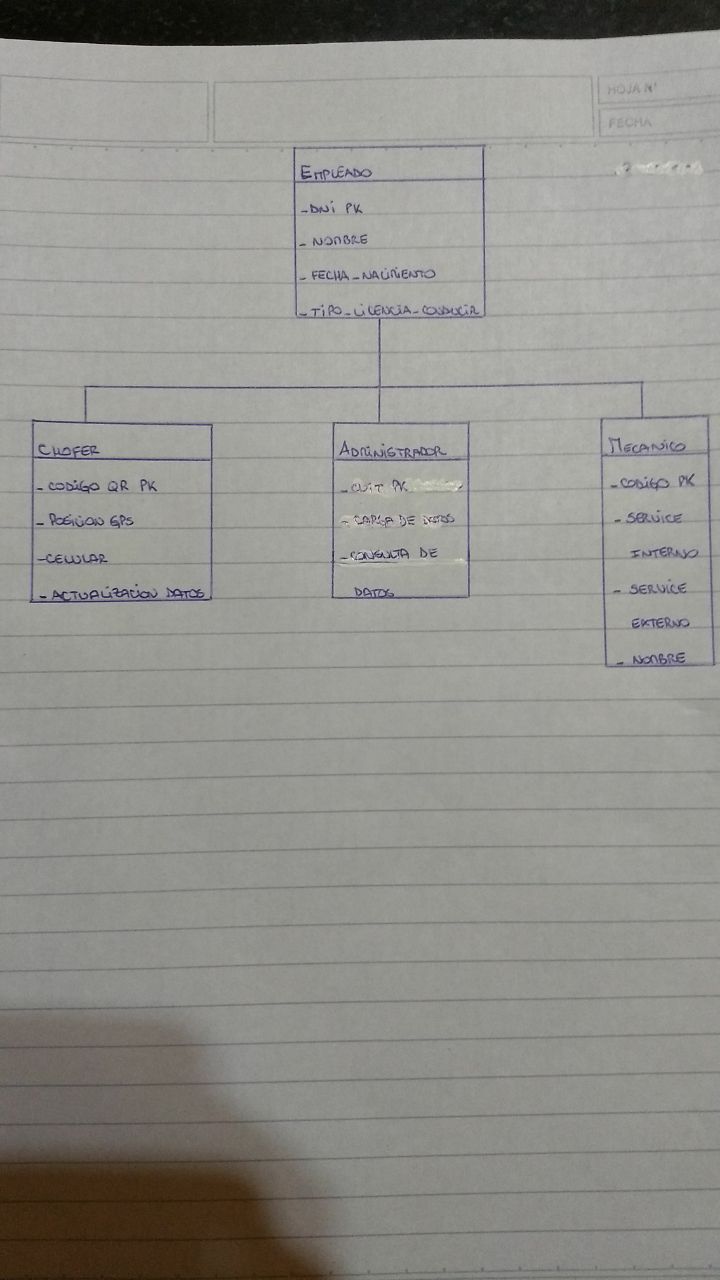 HOJA Nº
FECHA
EMPLEADO
-DNI PK
- NOMBRE
- FECHA_NACIMIENTO
- TIPO_LICENCIA_CONDUCIR
CHOFER
- CODIGO QR PK
- POSICION GPS
-CELULAR
- ACTUALIZACION DATOS
ADMINISTRADOR
- CUIT PK
- CARGA DE DATOS
- CONSULTA DE
DATOS
MECANICO
- CODIGO PK
- SERVICE
INTERNO
- SERVICE
EXTERNO
- NOMBRE